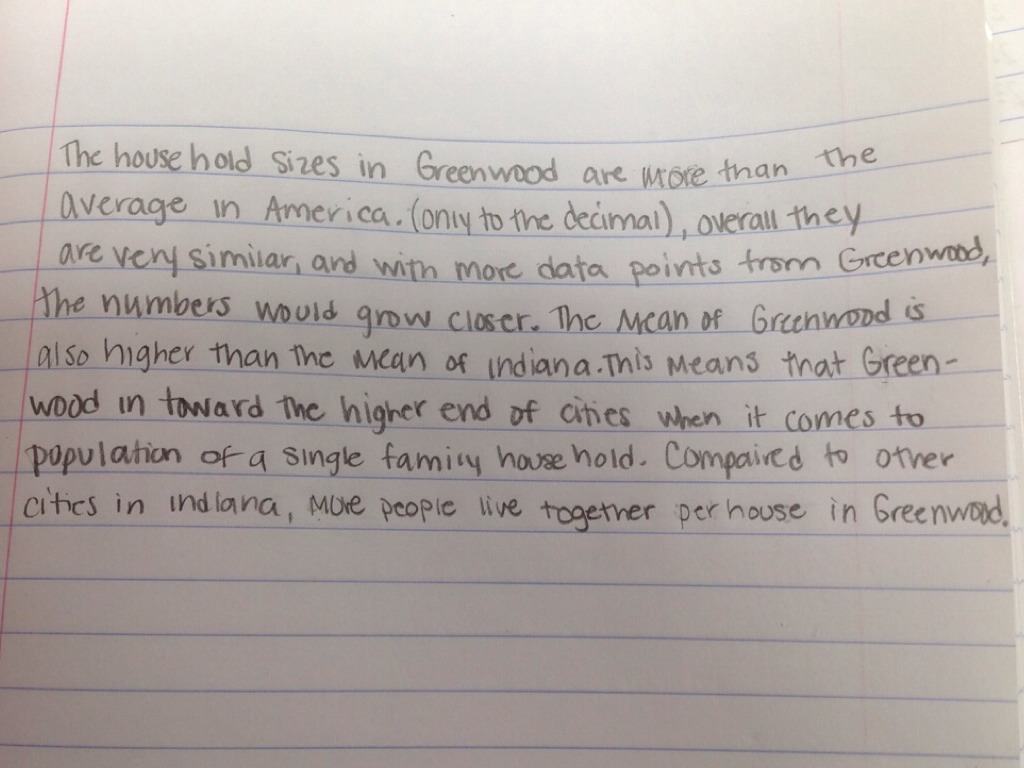 The household sizes in Greenwood are more than the
average in America. (only to the decimal), overall they
are very similar, and with more data points from Greenwood,
the numbers would grow closer. The mean of Greenwood is
also higher than the mean of indiana. This means that Green-
wood in toward the higher end of cities when it comes to
population of a single family household. Compaired to other
cities in indiana, more people live together per house in Greenwood.